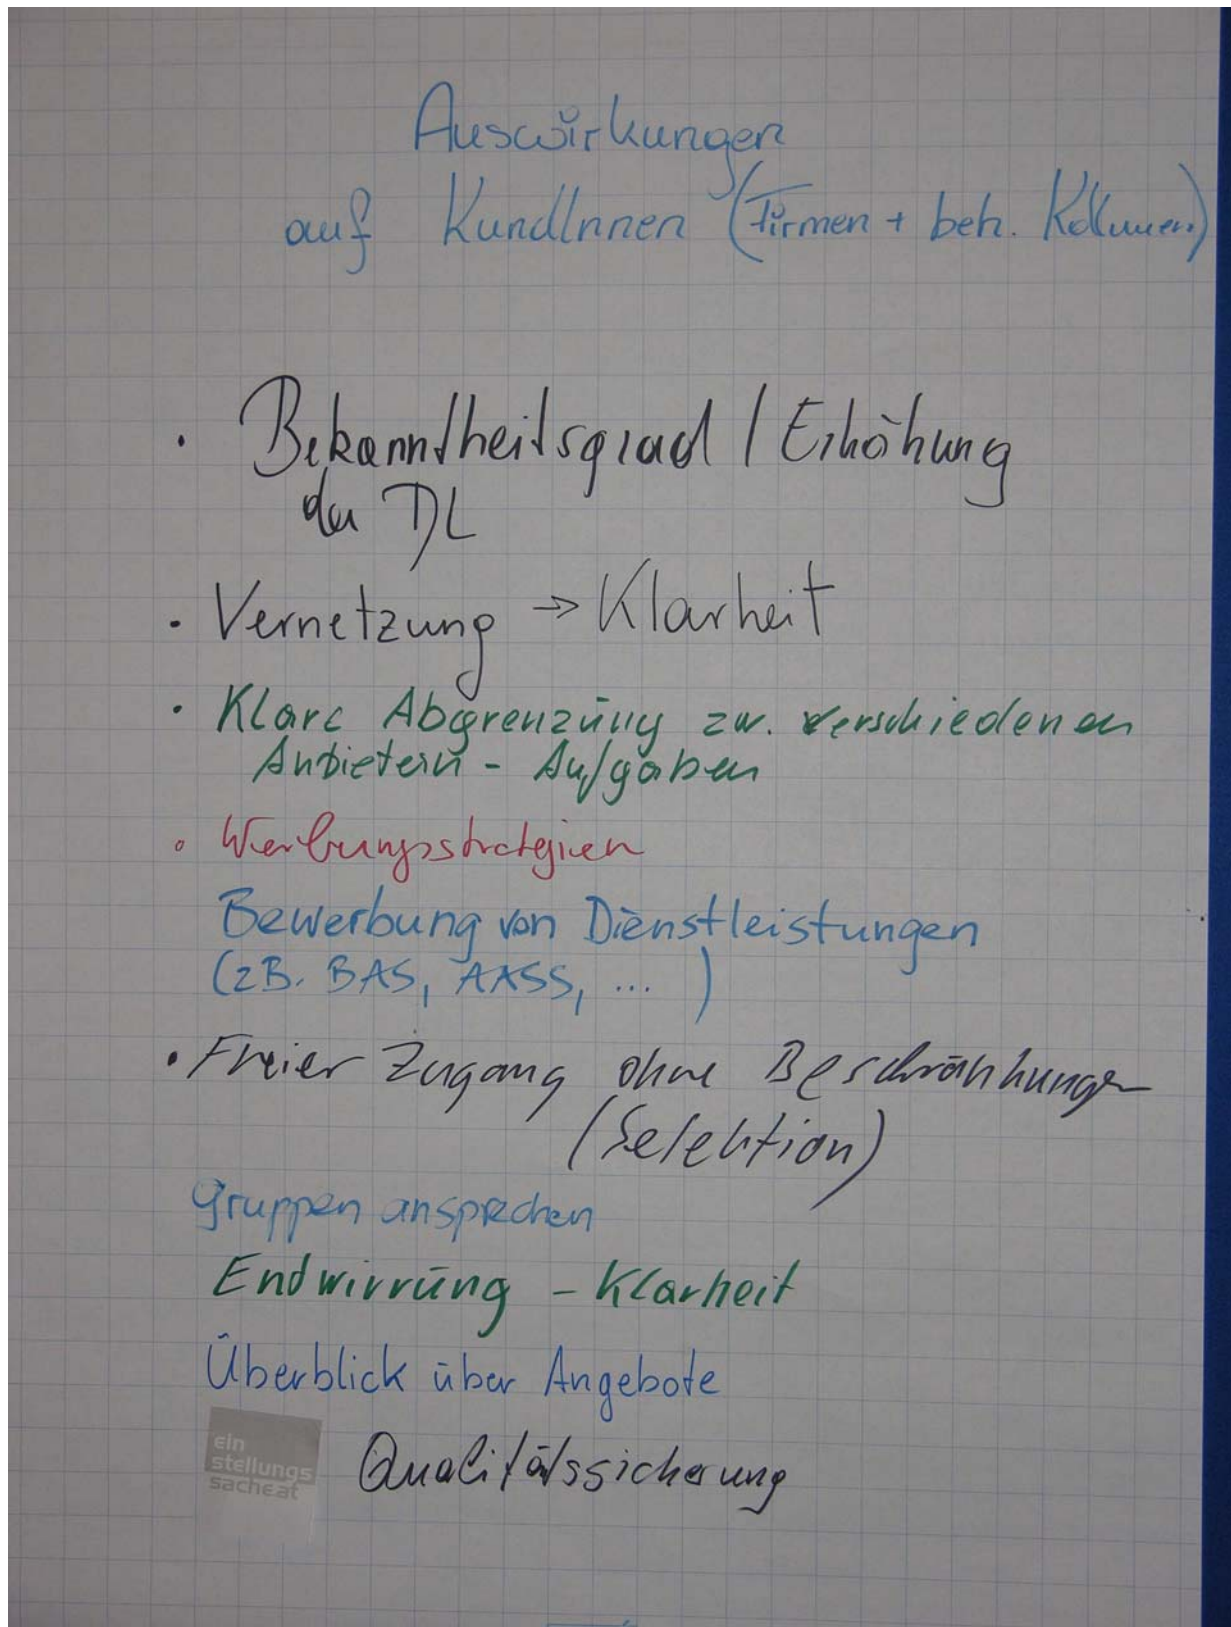 Auswirkungen
auf KundInnen (Firmen + beh.
• Bekanntheitsgrad / Erhöhung
der DL
• Vernetzung → Klarheit
• Klare Abgrenzung zw. verschiedenen
Anbietern - Aufgaben
• Werbungsstrategien
Bewerbung von Dienstleistungen
(zB. BAS, AASS, ... )
• Freier Zugang ohne Beschränkungen
(Selektion)
Gruppen ansprechen
Endwirrung - Klarheit
Überblick über Angebote
ein
stellungs
sache.at
Qualitätssicherung